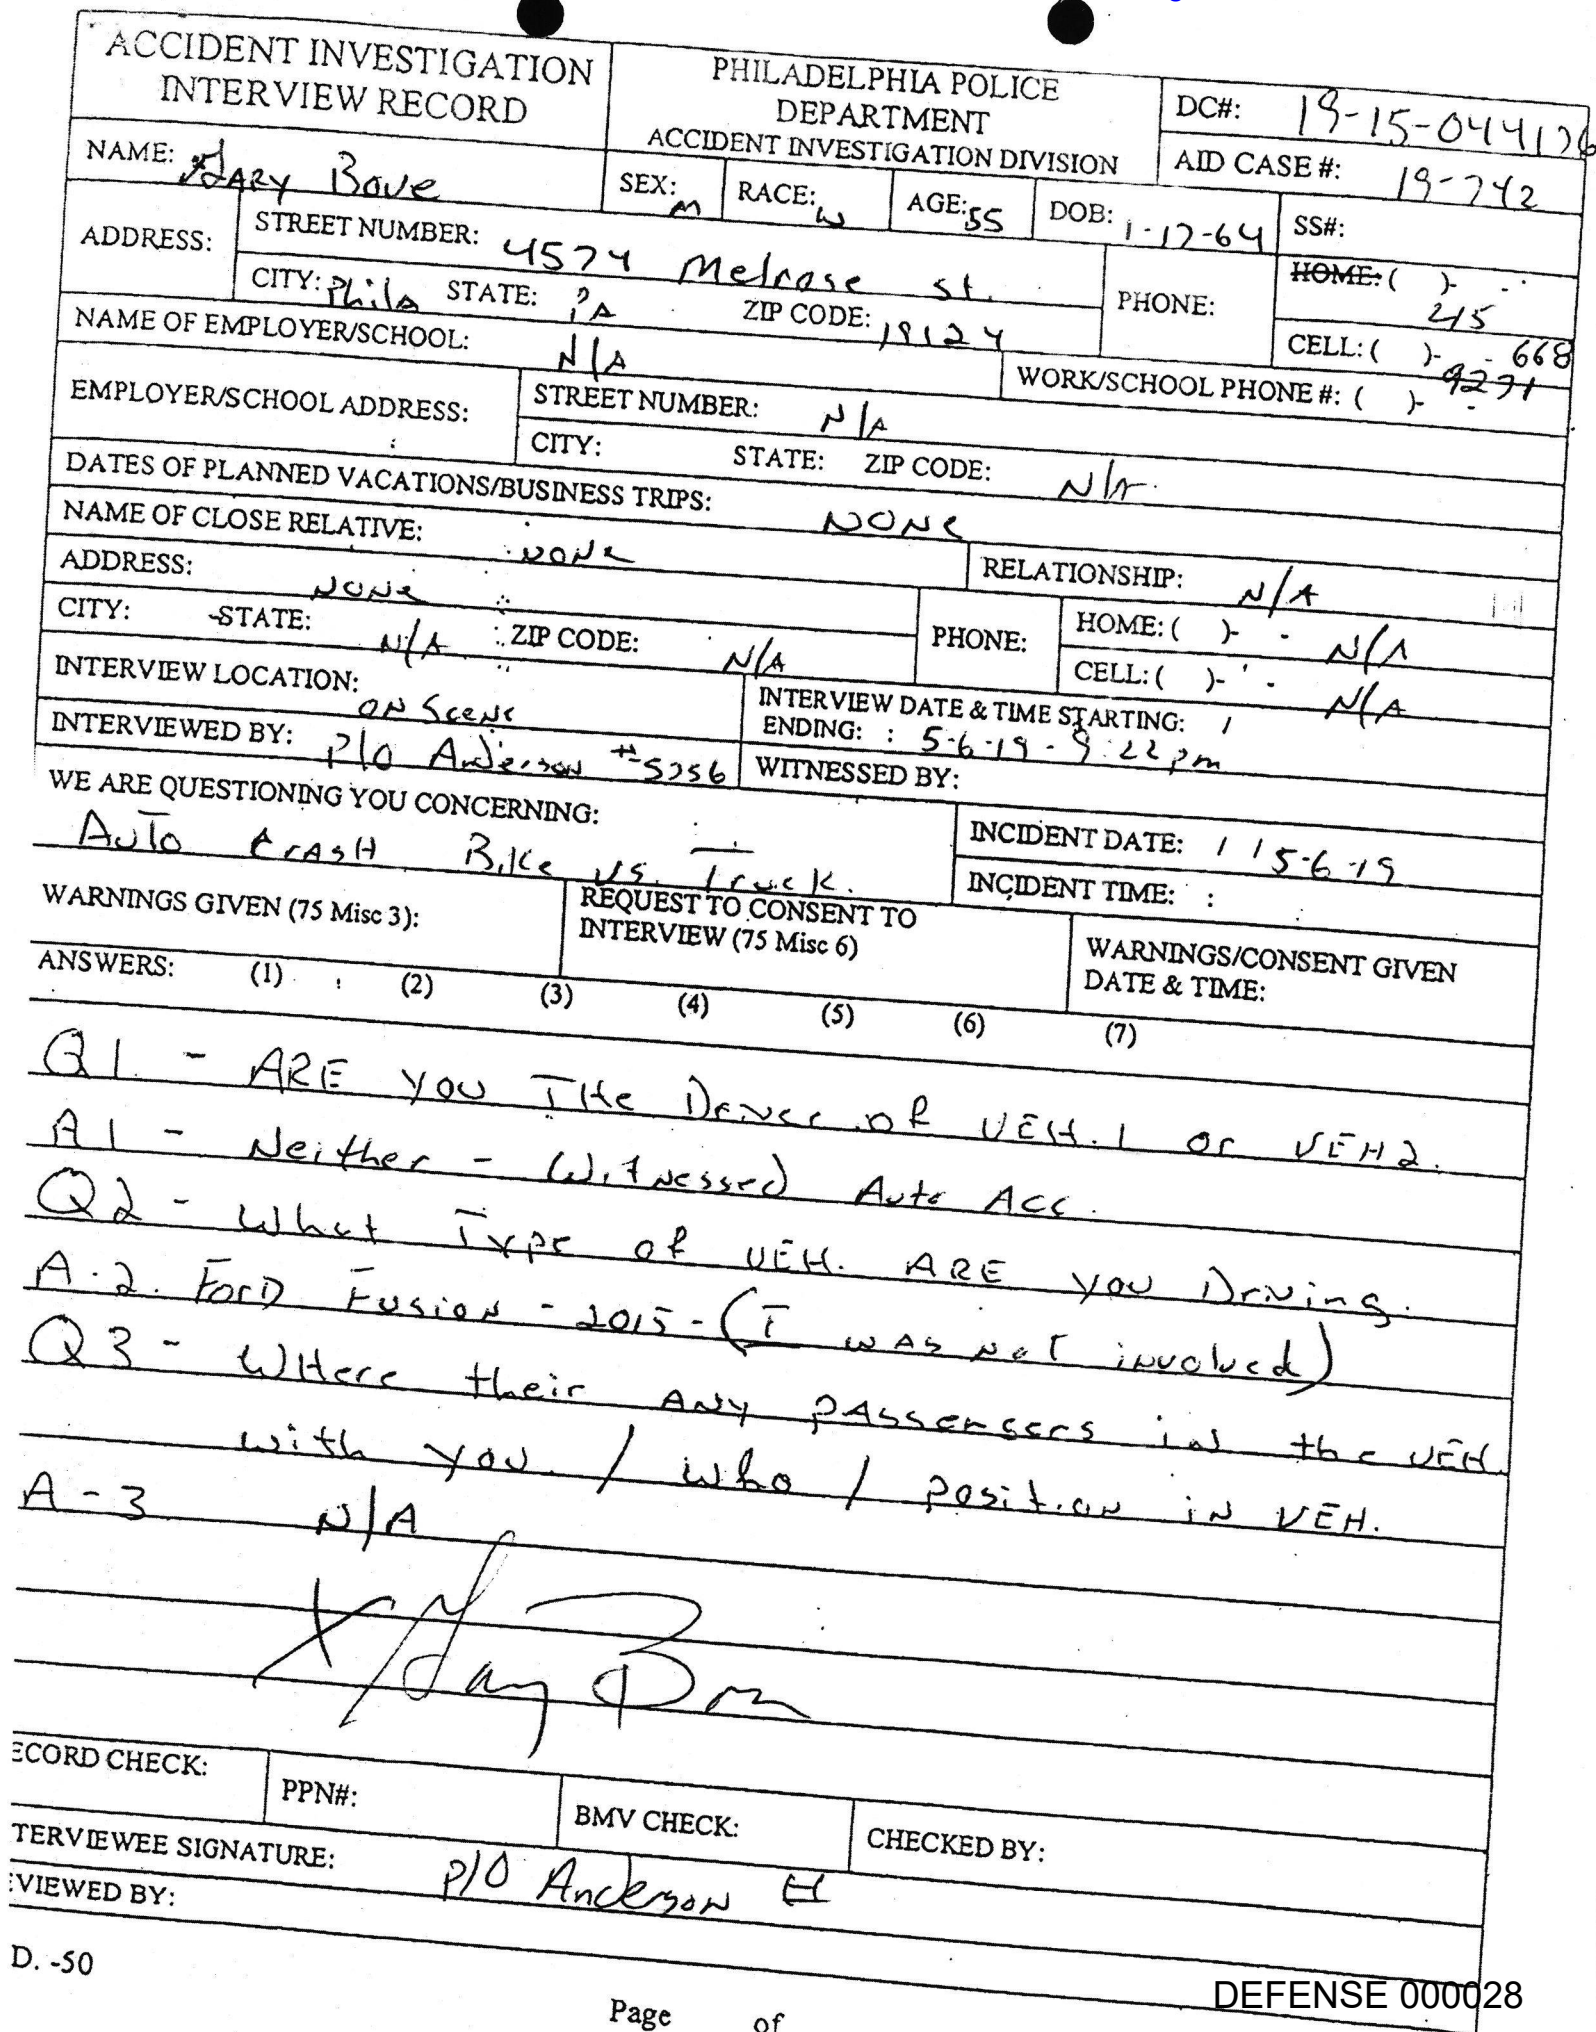 ACCIDENT INVESTIGATION
INTERVIEW RECORD
PHILADELPHIA POLICE
DEPARTMENT
ACCIDENT INVESTIGATION DIVISION
DC#: 19-15-044126
AID CASE #: 19-742
NAME: GARY Bove
SEX: M
RACE: W
AGE: 55
DOB: 1-17-64
SS#:
ADDRESS:
STREET NUMBER: 4574 Melrose St.
CITY: Phila STATE: PA ZIP CODE: 19124
PHONE:
HOME: ( ) -
215
CELL: ( ) - - 668
9271
NAME OF EMPLOYER/SCHOOL: N/A
WORK/SCHOOL PHONE #: ( ) - -
EMPLOYER/SCHOOL ADDRESS:
STREET NUMBER: N/A
CITY: STATE: ZIP CODE: N/A
DATES OF PLANNED VACATIONS/BUSINESS TRIPS: NONE
NAME OF CLOSE RELATIVE: NONE
RELATIONSHIP: N/A
ADDRESS: NONE
CITY: STATE: N/A ZIP CODE: N/A
PHONE:
HOME: ( ) - - N/A
CELL: ( ) - - N/A
INTERVIEW LOCATION: ON Scene
INTERVIEW DATE & TIME STARTING: /
ENDING: : 5-6-19 - 9:22 pm
INTERVIEWED BY: P/O Anderson #5256
WITNESSED BY:
WE ARE QUESTIONING YOU CONCERNING:
AuTo CrASH Bike vs. Truck.
INCIDENT DATE: / / 5-6-19
INCIDENT TIME: :
WARNINGS GIVEN (75 Misc 3):
REQUEST TO CONSENT TO
INTERVIEW (75 Misc 6)
WARNINGS/CONSENT GIVEN
DATE & TIME:
ANSWERS: (1) (2) (3) (4) (5) (6) (7)
Q1 - ARE YOU THe Driver of VEH.1 or VEH2.
A1 - Neither - Witnessed Auto Acc.
Q2 - What Type of VEH. ARE you Driving.
A-2. Ford Fusion - 2015 - (I was not involved)
Q3 - Where their ANY PAssengers in the VEH.
with you / who / position in VEH.
A-3 N/A
X Gary Bove
ECORD CHECK:
PPN#:
BMV CHECK:
CHECKED BY:
TERVIEWEE SIGNATURE: P/O Anderson
EVIEWED BY:
D. -50
Page of
DEFENSE 000028